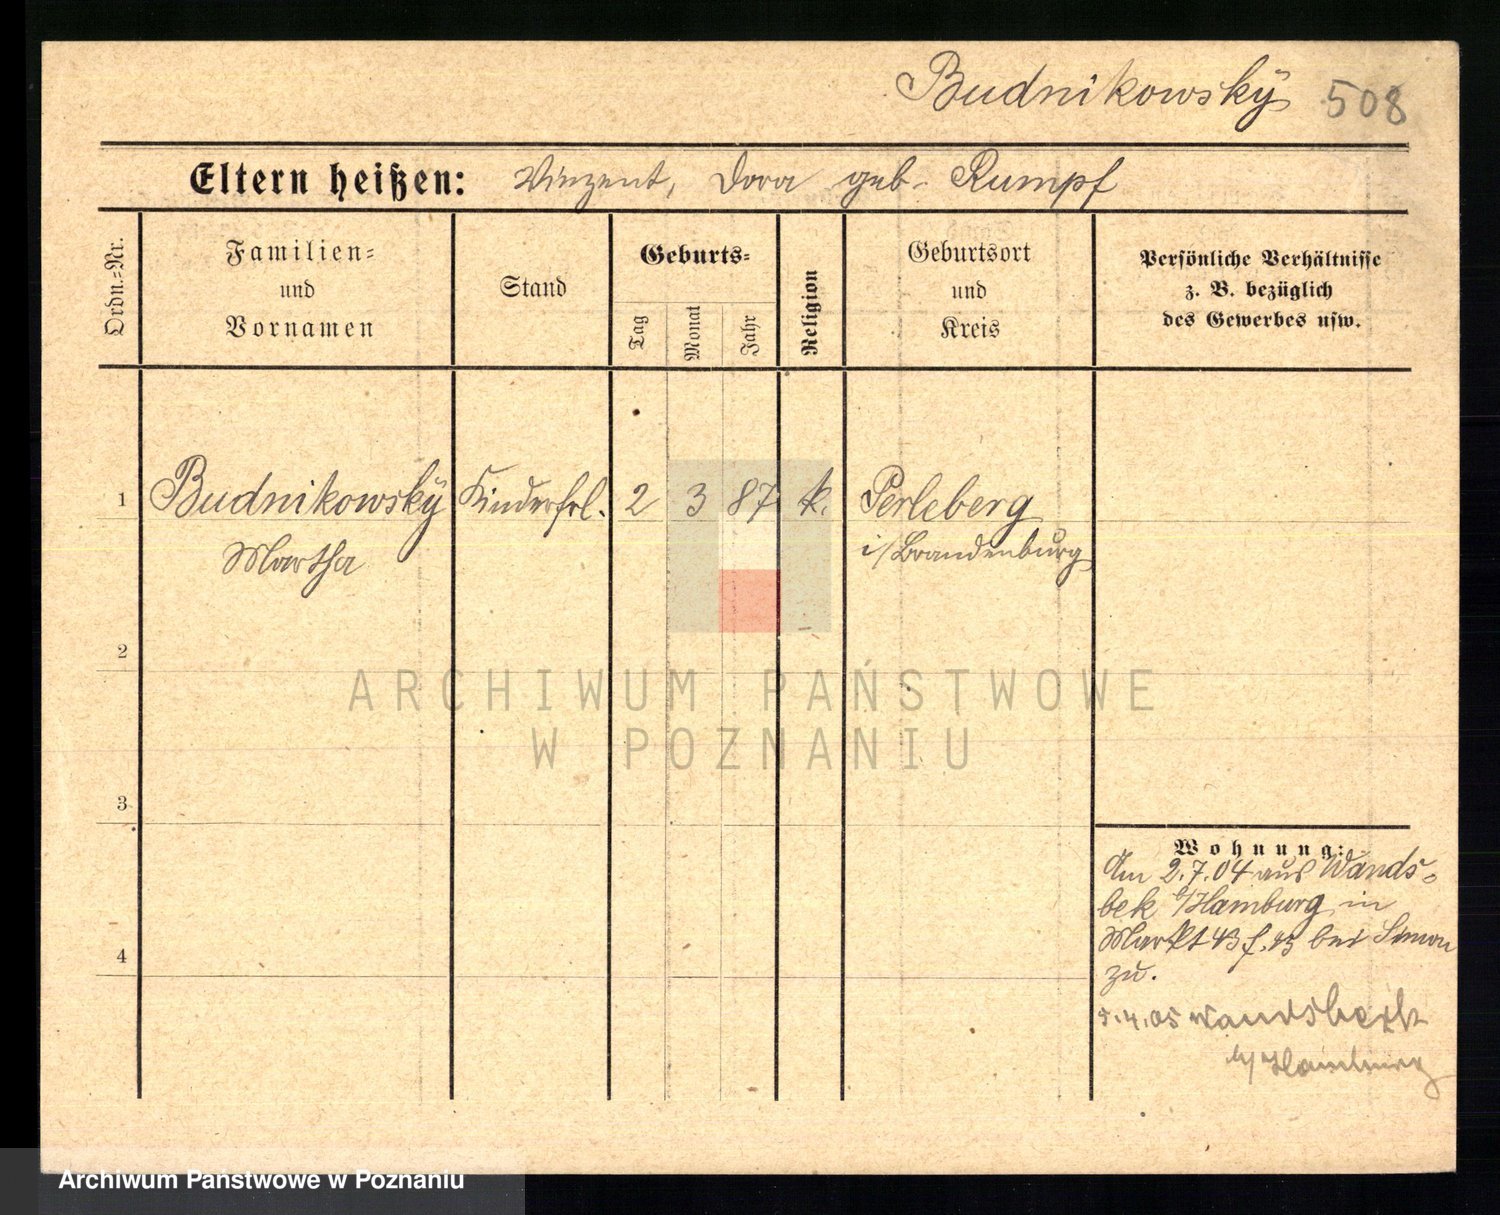 Budnikowskÿ 508
Eltern heißen: Vinzent, Dora geb. Rumpf
Ordn.-Nr.
Familien-
und
Vornamen
Stand
Geburts-
Tag
Monat
Jahr
Religion
Geburtsort
und
Kreis
Persönliche Verhältnisse
z. B. bezüglich
des Gewerbes usw.
1 Budnikowskÿ Kinderfrl. 2 3 87 k. Perleberg
Martha i/Brandenburg
2
ARCHIWUM PAŃSTWOWE
W POZNANIU
3
Wohnung:
Am 2.7.04 aus Wands-
bek b/Hamburg in
Markt 43 bei Simon
zu.
4
4.05 Wandsbeck
b/Hamburg
Archiwum Państwowe w Poznaniu